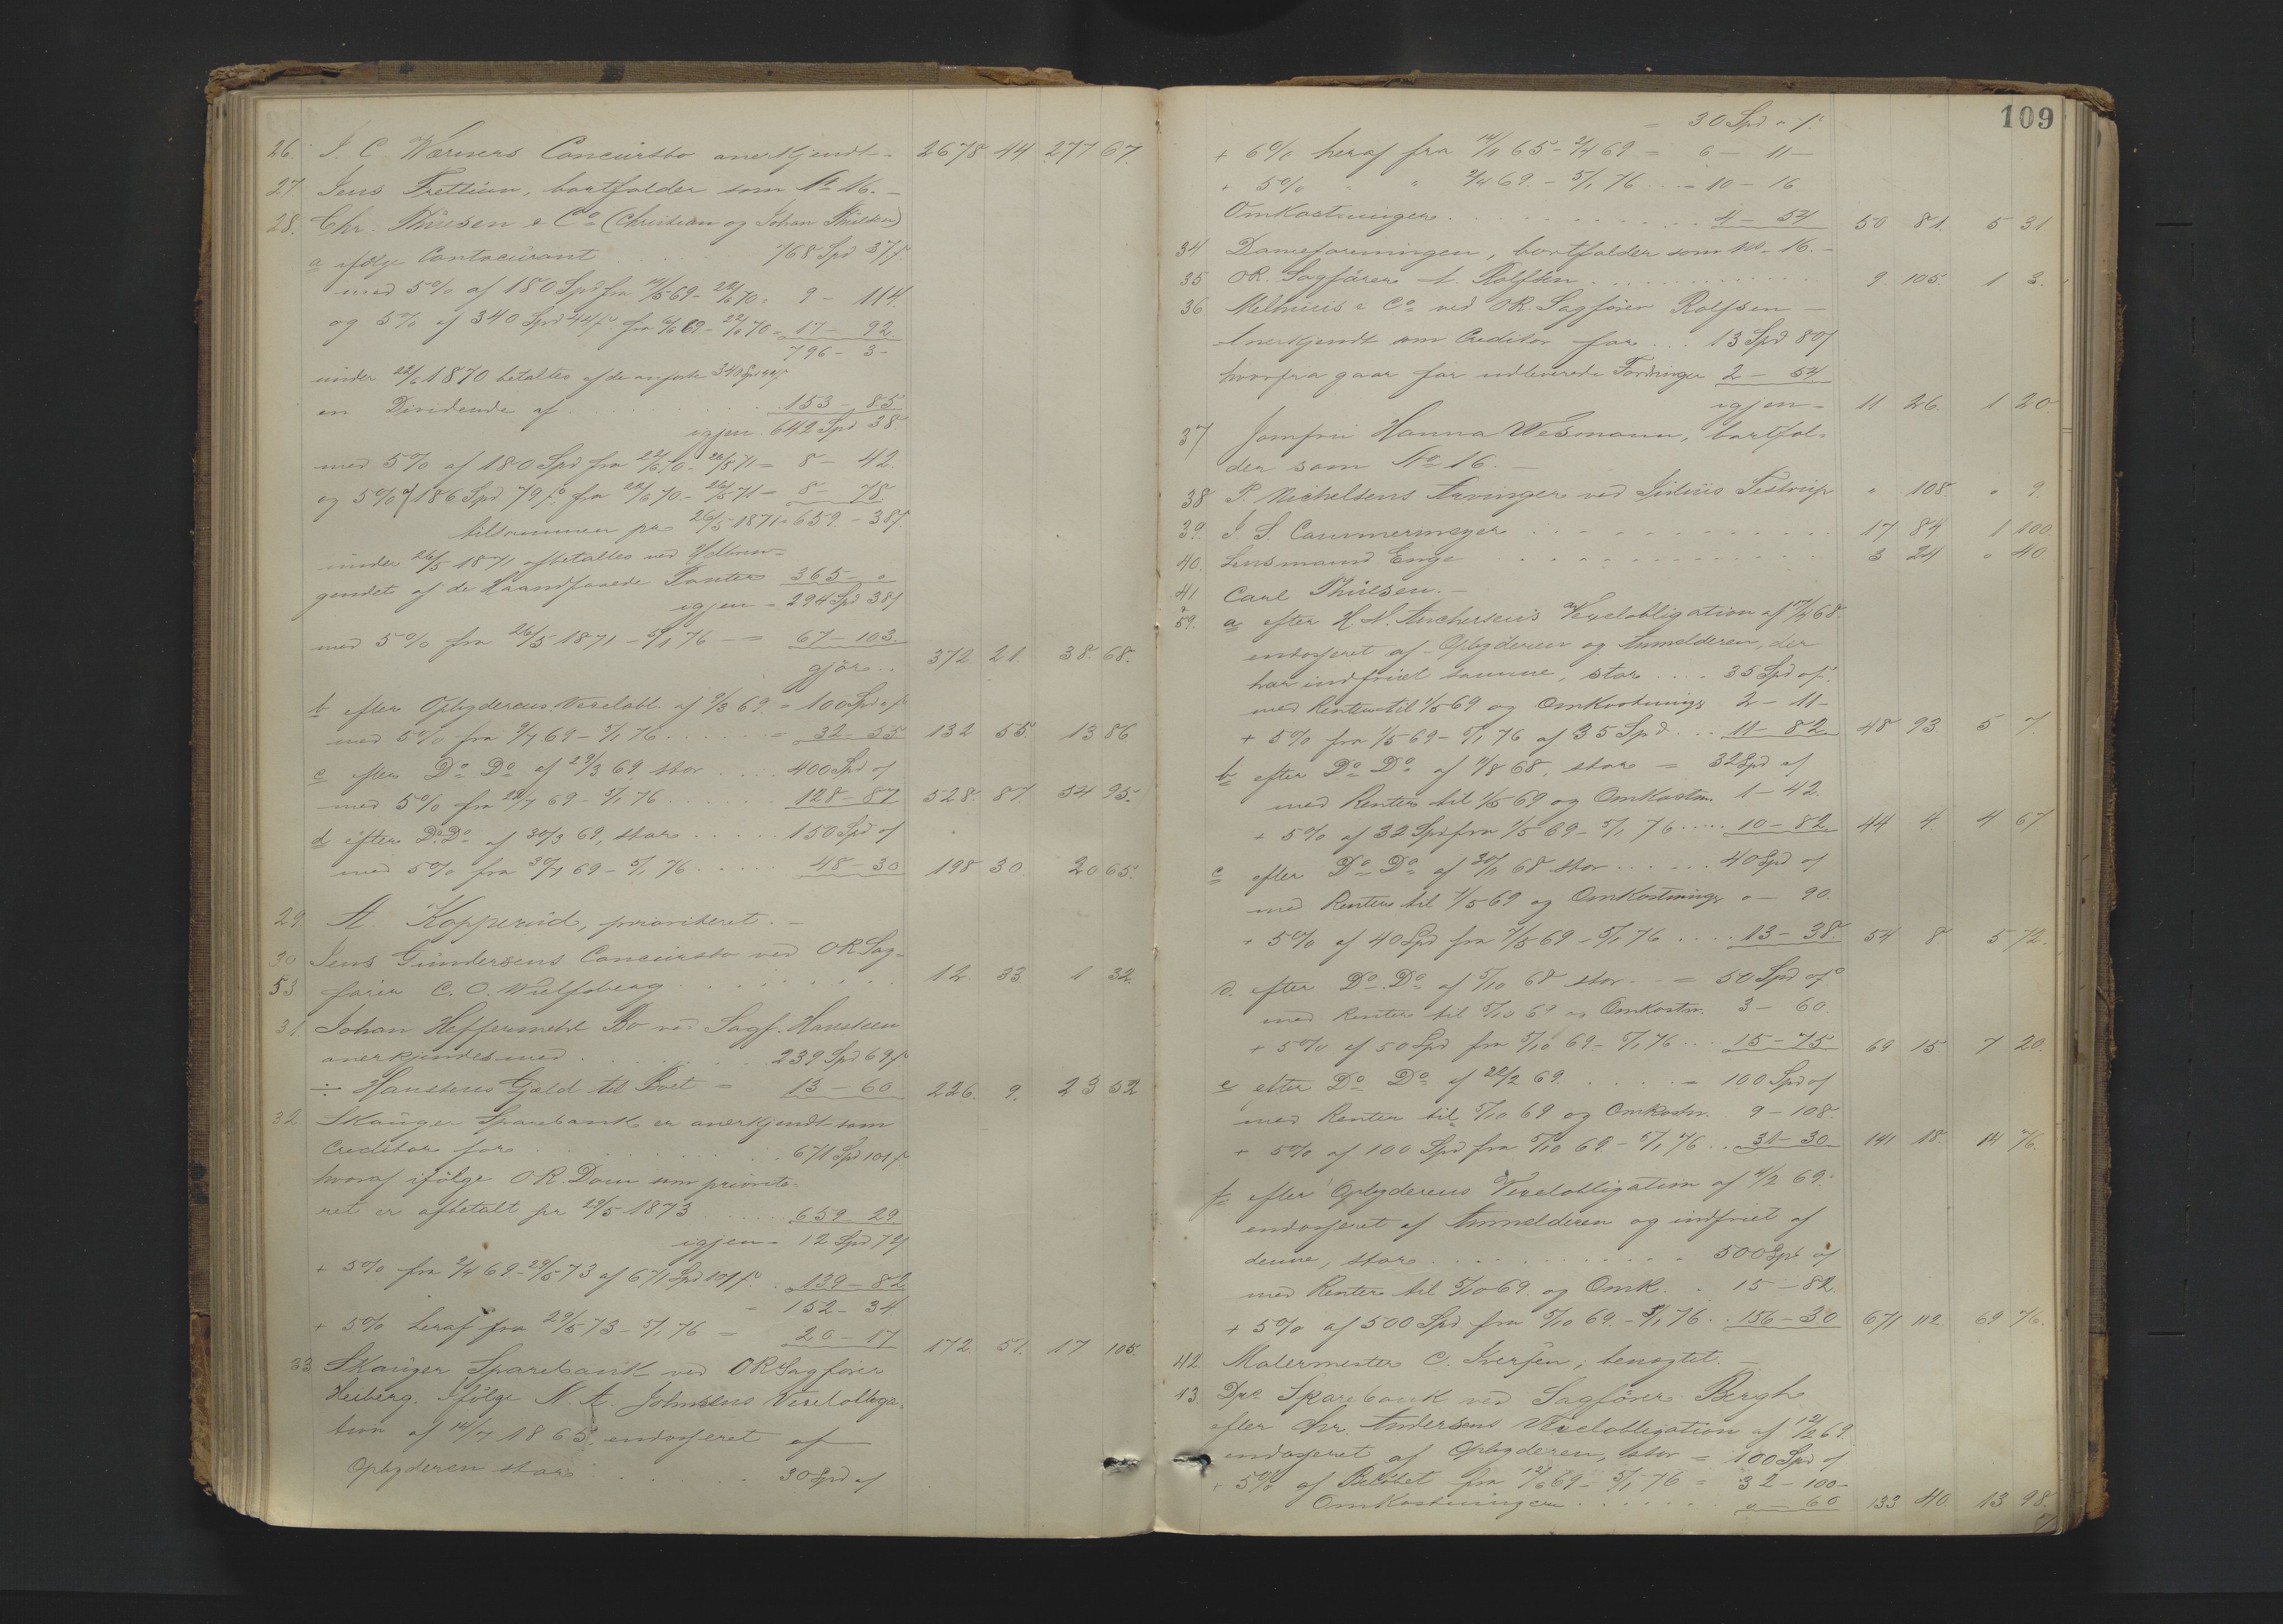 26. J. C. Wærners Concursbo anerkjendt - 2678 44 277 67.
27 Jens Frettien, bortfalder som No 16. -
28. Chr. Thuesen & Co (Christian og Johan Thuesen)
a ifölge Contocurant . . . 768 Spd 37 f
med 5% af 180 Spd fra 14/5 69 - 22/6 70 = 9 - 114.
og 5% af 340 Spd 44 f fra 6/6 69 - 22/6 70 = 17 - 92
796 - 3 -
under 22/6 1870 betaltes af de anförte 340 Spd 44 f
en Dividende af . . . 153 - 85
igjen 642 Spd 38.
med 5% af 180 Spd fra 22/6 70 - 26/5 71 = 8 - 42.
og 5% af 186 Spd 79 f fra 22/6 70 - 26/5 71 = 8 - 78.
tilsammen pr 26/5 1871 = 659 - 38 f
under 26/5 1871 afbetaltes ved
gendet af de Haandfaaede Panter 365 - "
igjen = 294 Spd 38 f
med 5% fra 26/5 1871 - 5/1 76 - = 67 - 103.
gjör . . 372 21. 38. 68.
b efter Opbyderens Vexelobl. af 9/3 69. = 100 Spd " f
med 5% fra 9/7 69 - 5/1 76 . . . = 32 - 55 132 55. 13 86
c efter Do Do af 29/3 69 stor . . . 400 Spd " f
med 5% fra 29/7 69 - 5/1 76 . . . 128 - 87 528. 87 54 95.
d efter Do Do af 30/3 69, stor . . . 150 Spd " f
med 5% fra 30/7 69 - 5/1 76 . . . 48 - 30 198 30. 20 65.
29 A. Kopperud, prioriteret. -
30 Jens Gundersens Concursbo ved OR Sag-
53 förer C. O. Wulfsberg . . . 12 33 1 32.
31. Johan Heffermehl Bo ved Sagf. Hansteen
anerkjendes med . . . 239 Spd 69 f
÷ Hansteens Gjæld til Boet = 13 - 60 226. 9. 23 52
32 Skauger Sparebank er anerkjendt som
Creditor for . . . 671 Spd 101 f
hvoraf ifölge OR. Dom som priorite-
ret er afbetalt pr 29/5 1873 . . . 659 29
igjen = 12 Spd 72 f
+ 5% fra 2/4 69 - 29/5 73 af 671 Spd 101 f . 139 - 82
= 152 - 34
+ 5% heraf fra 29/5 73 - 5/1 76 = 20 - 17 172. 51. 17 105.
33 Skauger Sparebank ved OR Sagförer
Heiberg. Ifölge N. A. Johnsens Vexelobliga-
tion af 14/7 1865. endosseret af
Opbyderen stor . . . 30 Spd " f
109
= 30 Spd " f.
+ 6% heraf fra 14/11 65 - 2/4 69 = 6 - 11 -
+ 5% " " 2/4 69. - 5/1 76 . . = 10 - 16
Omkostninger . . . 4 - 54 50 81. 5 31
34 Dameforeningen, bortfalder som No 16. -
35 OR. Sagförer A. Rolfsen . . . 9 105. 1 3.
36 Melhuus & Co ved OR Sagförer Rolfsen -
Anerkjendt som Creditor for . . . 13 Spd 80 f
hvorfra gaar for udleverede Fordringer 2 - 54
igjen - 11 26. 1 20.
37 Jomfru Hanna Wesmann, bortfal-
der som No 16. -
38 P. Michelsens Arvinger ved Julius Testrup " 108. " 9.
39. J. S. Cammermeyer . . . 17 84. 1 100.
40. Lensmand Enge . . . 3 24 " 40
41 Carl Thuesen. -
59. a efter H. N. Anchersens Vexelobligation af 17/4 68.
endosseret af Opbyderen og Anmelderen, der
har indfriet samme, stor . . . 35 Spd " f.
med Renter til 1/5 69 og Omkostninger 2 - 11 -
+ 5% fra 1/5 69 - 5/1 76 af 35 Spd . . 11 - 82 48 93. 5 7.
b efter Do Do af 11/8 68, stor = 32 Spd " f
med Renter til 1/5 69 og Omkostn. 1 - 42.
+ 5% af 32 Spd fra 1/5 69 - 5/1 76 . . . 10 - 82 44 4. 4 67
c efter Do Do af 30/11 68 stor . . . 40 Spd " f
med Renter til 1/5 69 og Omkostninger " - 90.
+ 5% af 40 Spd fra 1/5 69 - 5/1 76 . . . 13 - 38. 54 8 5 72.
d. efter Do Do af 5/10 68 stor . . = 50 Spd " f
med Renter til 5/10 69 og Omkostn. 3 - 60.
+ 5% af 50 Spd fra 5/10 69 - 5/1 76 . . . 15 - 75 69 15 7 20.
e efter Do Do af 22/2 69. . . . = 100 Spd " f
med Renter til 5/10 69 og Omkostn. 9 - 108.
+ 5% af 100 Spd fra 5/10 69 - 5/1 76 . . 31 - 30 141 18. 14 76.
f. efter Opbyderens Vexelobligation af 4/2 69.
endosseret af Anmelderen og indfriet af
denne, stor . . . 500 Spd " f
med Renter til 5/10 69. og Omk. . 15 - 82.
+ 5% af 500 Spd fra 5/10 69. - 5/1 76 . . 156 - 30 671 112. 69 76.
42 Malermester C. Iversen, benægtet. -
43. Dps Sparebank ved Sagförer Bergh
efter Chr. Andersens Vexelobligation af 12/2 69.
endosseret af Opbyderen, stor = 100 Spd " f
+ 5% af Belöbet fra 12/6 69 - 5/1 76 = 32 - 100 -
Omkostninger . . . " - 60 133 40 13 98.